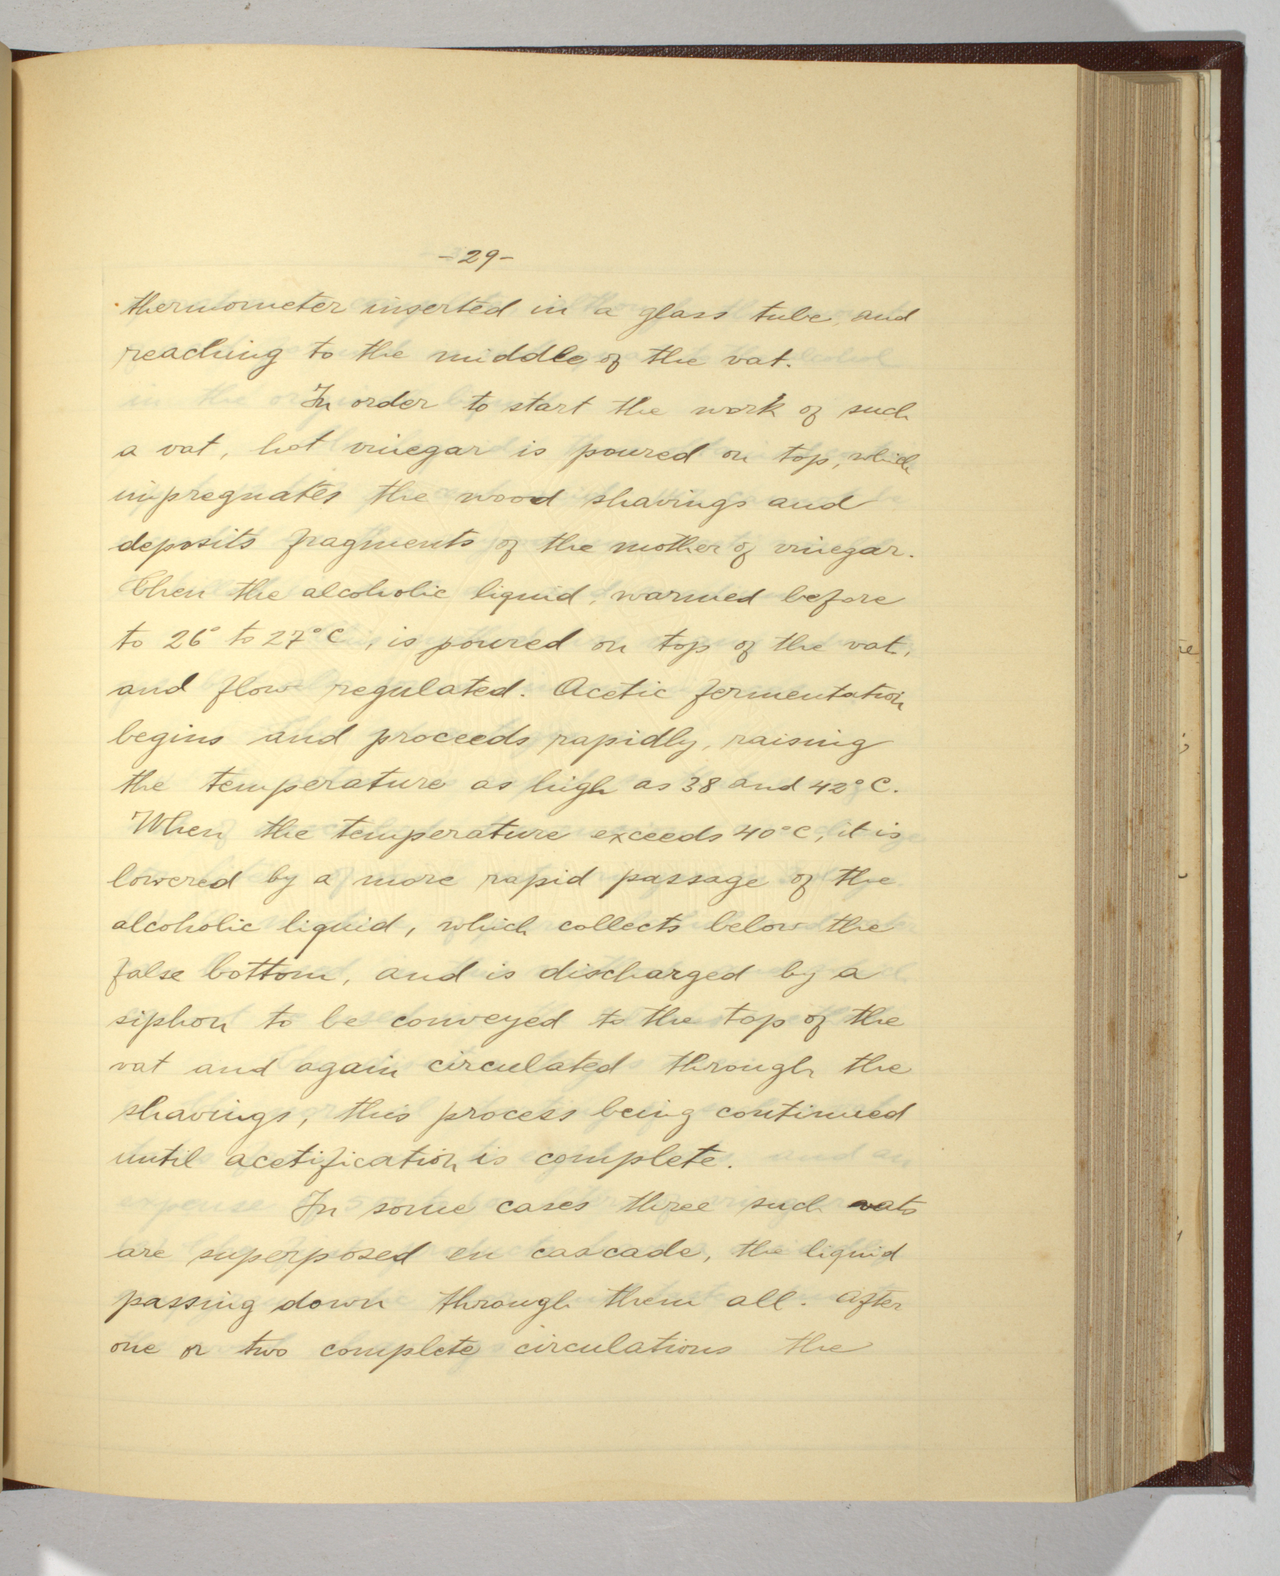 -29-
thermometer inserted in a glass tube and
reaching to the middle of the vat.
In order to start the work of such
a vat, hot vinegar is poured on top, which
impregnates the wood shavings and
deposits fragments of the mother of vinegar.
Then the alcoholic liquid, warmed before
to 26° to 27°C, is poured on top of the vat,
and flow regulated. Acetic fermentation
begins and proceeds rapidly, raising
the temperature as high as 38 and 42°C.
When the temperature exceeds 40°C, it is
lowered by a more rapid passage of the
alcoholic liquid, which collects below the
false bottom, and is discharged by a
siphon to be conveyed to the top of the
vat and again circulated through the
shavings, this process being continued
until acetification is complete.
In some cases three such vats
are superposed en cascade, the liquid
passing down through them all. After
one or two complete circulations the